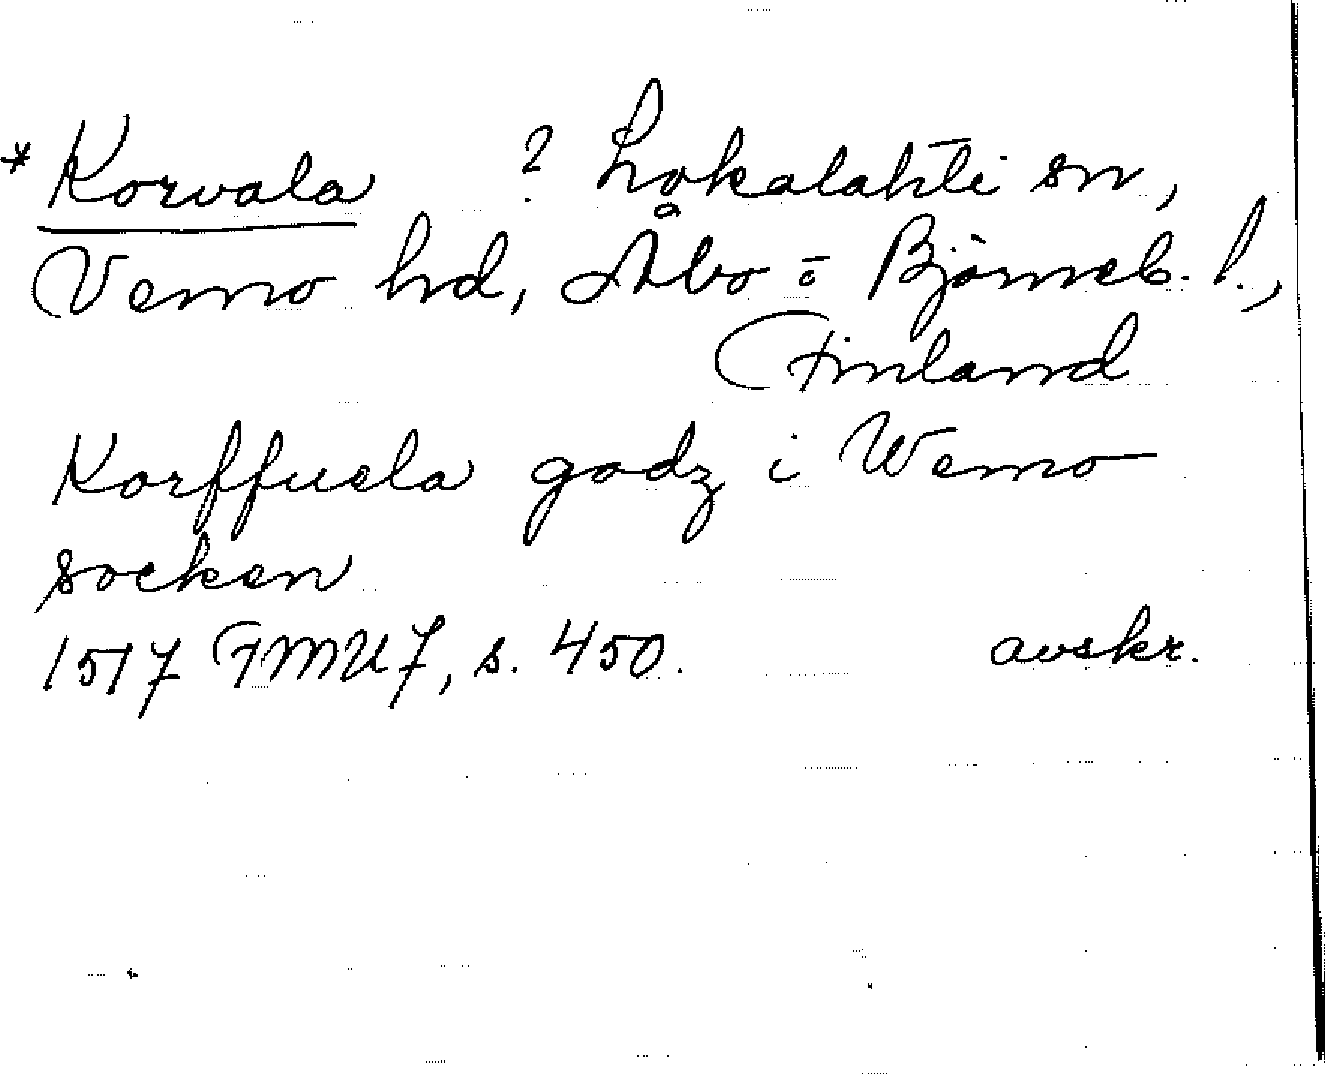 *Korvala ? Lokalahti sn,
Vemo hd, Åbo o Björneb. l.,
Finland
Korffuela godz i Wemo
socken
1517 FMU 7, s. 450. avskr.